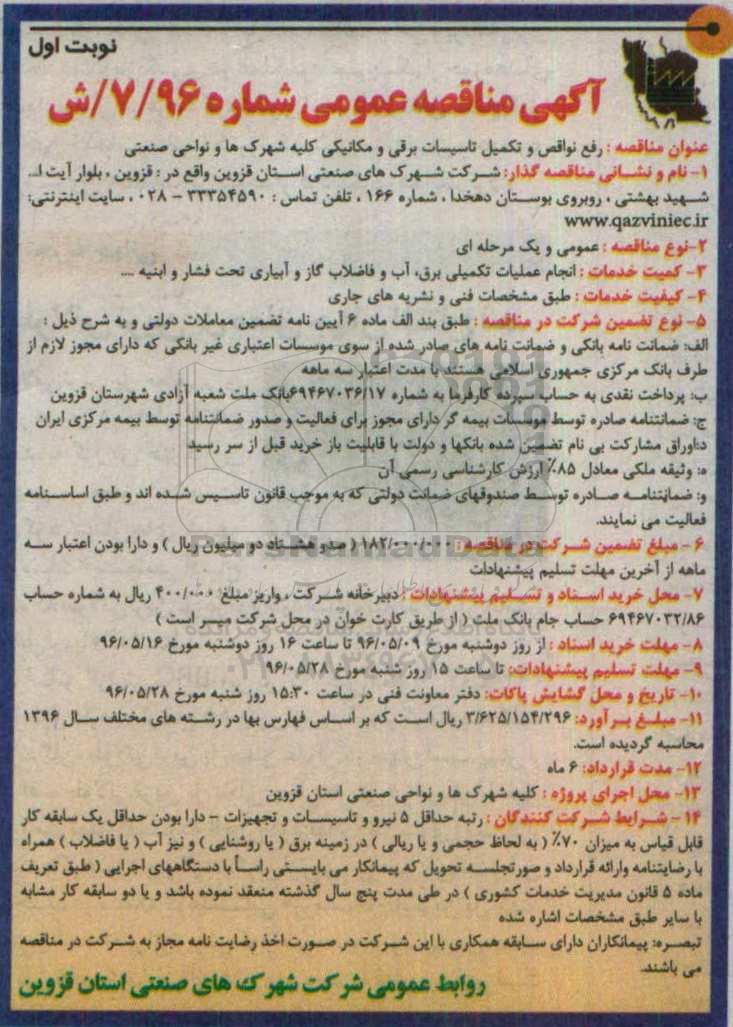 نوبت اول
آگهی مناقصه عمومی شماره ۷/۹۶/ش
عنوان مناقصه : رفع نواقص و تکمیل تاسیسات برقی و مکانیکی کلیه شهرک ها و نواحی صنعتی
۱- نام و نشانی مناقصه گذار: شرکت شهرک های صنعتی استان قزوین واقع در : قزوین ، بلوار آیت ا...
شهید بهشتی ، روبروی بوستان دهخدا ، شماره ۱۶۶ ، تلفن تماس : ۳۳۳۵۴۵۹۰ - ۰۲۸ ، سایت اینترنتی:
www.qazviniec.ir
۲-نوع مناقصه : عمومی و یک مرحله ای
۳- کمیت خدمات : انجام عملیات تکمیلی برق، آب و فاضلاب گاز و آبیاری تحت فشار و ابنیه ....
۴- کیفیت خدمات : طبق مشخصات فنی و نشریه های جاری
۵- نوع تضمین شرکت در مناقصه : طبق بند الف ماده ۶ آیین نامه تضمین معاملات دولتی و به شرح ذیل :
الف: ضمانت نامه بانکی و ضمانت نامه های صادر شده از سوی موسسات اعتباری غیر بانکی که دارای مجوز لازم از
طرف بانک مرکزی جمهوری اسلامی هستند با مدت اعتبار سه ماهه
ب: پرداخت نقدی به حساب سپرده کارفرما به شماره ۶۹۴۶۷۰۳۶/۱۷بانک ملت شعبه آزادی شهرستان قزوین
ج: ضمانتنامه صادره توسط موسسات بیمه گر دارای مجوز برای فعالیت و صدور ضمانتنامه توسط بیمه مرکزی ایران
د:اوراق مشارکت بی نام تضمین شده بانکها و دولت با قابلیت باز خرید قبل از سر رسید
ه: وثیقه ملکی معادل ۸۵٪ ارزش کارشناسی رسمی آن
و: ضمانتنامه صادره توسط صندوقهای ضمانت دولتی که به موجب قانون تاسیس شده اند و طبق اساسنامه
فعالیت می نمایند.
۶ - مبلغ تضمین شرکت در مناقصه: ۱۸۲/۰۰۰/۰۰۰ ( صدو هشتاد دو میلیون ریال ) و دارا بودن اعتبار سه
ماهه از آخرین مهلت تسلیم پیشنهادات
۷- محل خرید اسناد و تسلیم پیشنهادات : دبیرخانه شرکت ، واریز مبلغ ۴۰۰/۰۰۰ ریال به شماره حساب
۶۹۴۶۷۰۳۲/۸۶ حساب جام بانک ملت ( از طریق کارت خوان در محل شرکت میسر است )
۸- مهلت خرید اسناد : از روز دوشنبه مورخ ۹۶/۰۵/۰۹ تا ساعت ۱۶ روز دوشنبه مورخ ۹۶/۰۵/۱۶
۹- مهلت تسلیم پیشنهادات: تا ساعت ۱۵ روز شنبه مورخ ۹۶/۰۵/۲۸
۱۰- تاریخ و محل گشایش پاکات: دفتر معاونت فنی در ساعت ۱۵:۳۰ روز شنبه مورخ ۹۶/۰۵/۲۸
۱۱- مبلغ برآورد: ۳/۶۲۵/۱۵۴/۲۹۶ ریال است که بر اساس فهارس بها در رشته های مختلف سال ۱۳۹۶
محاسبه گردیده است.
۱۲- مدت قرارداد: ۶ ماه
۱۳- محل اجرای پروژه : کلیه شهرک ها و نواحی صنعتی استان قزوین
۱۴ - شرایط شرکت کنندگان : رتبه حداقل ۵ نیرو و تاسیسات و تجهیزات - دارا بودن حداقل یک سابقه کار
قابل قیاس به میزان ۷۰٪ ( به لحاظ حجمی و یا ریالی ) در زمینه برق ( یا روشنایی ) و نیز آب ( یا فاضلاب ) همراه
با رضایتنامه وارائه قرارداد و صورتجلسه تحویل که پیمانکار می بایستی راساً با دستگاههای اجرایی ( طبق تعریف
ماده ۵ قانون مدیریت خدمات کشوری ) در طی مدت پنج سال گذشته منعقد نموده باشد و یا دو سابقه کار مشابه
با سایر طبق مشخصات اشاره شده
تبصره: پیمانکاران دارای سابقه همکاری با این شرکت در صورت اخذ رضایت نامه مجاز به شرکت در مناقصه
می باشند.
روابط عمومی شرکت شهرک های صنعتی استان قزوین
ParsNamadData